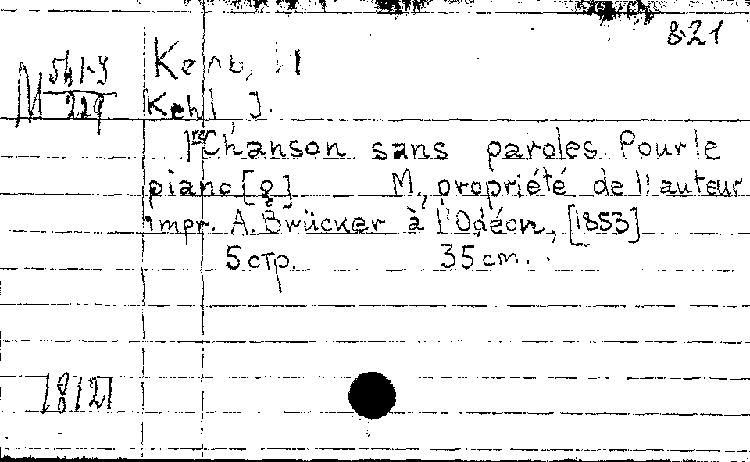 821
М 561-9
229
Кель,
Kehl, J.
1re Chanson sans paroles Pour le
piano [g] M., propriété de l'auteur
impr. A. Brücker à l'Odéon, [1853]
5 стр. 35 cm.
18121